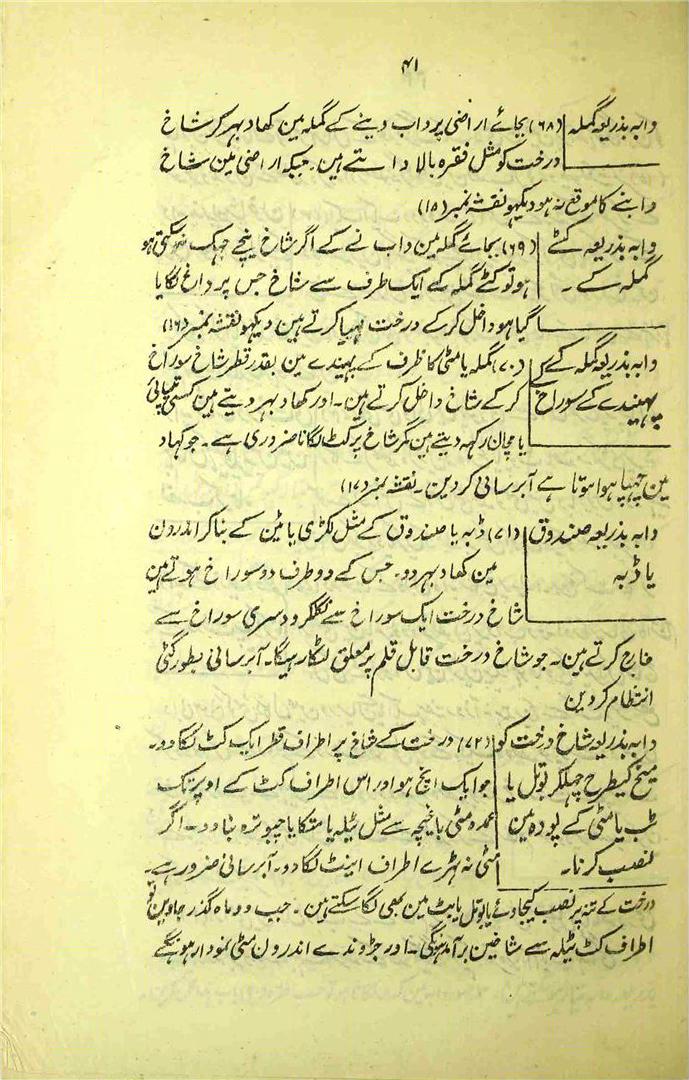 ۴۱
دابہ بذریعہ گملہ (۶۸) بجائے اراضی پر داب دینے کے گملہ مین کھاد بہر کر شاخ
درخت کو مثل فقرہ بالا دابتے ہین۔ جبکہ اراضی مین شاخ
دابنے کا موقع نہ ہو دیکہو نقشہ نمبر (۱۵)
دابہ بذریعہ کٹے (۶۹) بجائے گملہ مین داب نے کے اگر شاخ نیچے جہک نہ سکتی ہو
گملہ کے۔ ہو تو کٹے گملہ کے ایک طرف سے شاخ جس پر داغ لگایا
گیا ہو داخل کر کے درخت مہیا کرتے ہین دیکہو نقشہ نمبر (۱۶)
دابہ بذریعہ گملہ کے (۷۰) گملہ یا مٹی کا ظرف کے پہیندے مین بقدر قطر شاخ سوراخ
پہیندے کے سوراخ کر کے شاخ داخل کرتے ہین۔ اور کھاد بہر دیتے ہین کسی تپائی
یا مچان رکہہ دیتے ہین مگر شاخ پر کٹ لگانا ضروری ہے۔ جو کہاد
مین چہپا ہوا ہوتا ہے آبرسانی کر دین۔ نقشہ نمبر (۱۷)
دابہ بذریعہ صندوق (۷۱) ڈبہ یا صندوق کے مثل لکڑی یا ٹین کے بنا کر اندرون
یا ڈبہ مین کھاد بہر دو۔ جس کے دو طرف دو سوراخ ہوتے ہین
شاخ درخت ایک سوراخ سے نکلکر دوسری سوراخ سے
خارج کرتے ہین۔ جو شاخ درخت قابل قلم پر معلق لٹکا رہیگا۔ آبرسانی بطور گٹی
انتظام کر دین
دابہ بذریعہ شاخ درخت کو (۷۲) درخت کے شاخ پر اطراف قطر ایک کٹ لگا دو۔
میخ کیطرح چہلکر بوتل یا جو ایک انچ ہو اور اس اطراف کٹ کے اوپر تک
ٹب یا مٹی کے پودہ مین عمدہ مٹی باغیچہ سے مثل ٹیلہ یا مٹکا یا چبوترہ بنا دو۔ اگر
نصب کرنا۔ مٹی نہ ٹہرے اطراف اینٹ لگا دو۔ آبرسانی ضرور ہے۔
درخت کے تنہ پر نصب کیجاوئے یا بوتل یا بٹ مین بھی لگا سکتے ہین۔ جب دو ماہ گذر جاوین تو
اطراف کٹ ٹیلہ سے شاخین برآمد ہونگی۔ اور جڑ وندے اندرون مٹی نمودار ہونگے